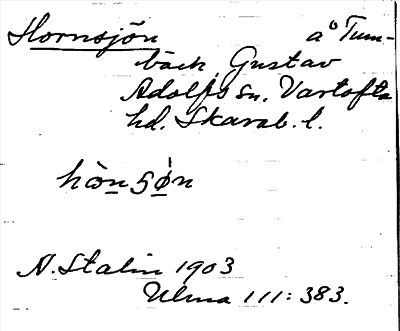 Hornsjön a° Tum-
bäck, Gustav
Adolfs sn. Vartofta
hd. Skarab. l.
hòn sø̀n
N. Stalin 1903
Ulma 111: 383.